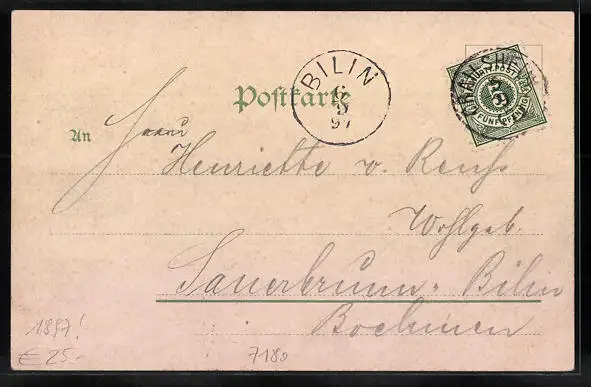 Postkarte
BILIN
6
5
97
CRAILSHEIM
FÜNF PFENNIG
An
Frau
Henriette v. Reuß
Wohlgeb.
Sauerbrunn-Bilin
Boehmen
1897!
€ 25.-
7180